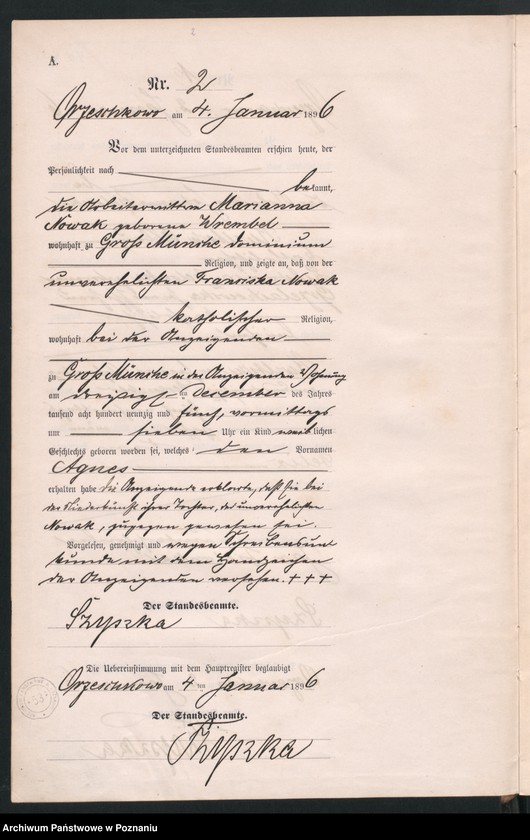 A.
Nr. 2
Orzeschkowo am 4. Januar 1896
Vor dem unterzeichneten Standesbeamten erschien heute, der
Persönlichkeit nach bekannt,
die Arbeiterwittwe Marianna
Nowak geborene Wrembel
wohnhaft zu Groß Münche Dominium
Religion, und zeigte an, daß von der
unverehelichten Franciska Nowak
katholischer Religion,
wohnhaft bei der Anzeigenden
zu Groß Münche in der Anzeigenden Wohnung
am dreißigsten Dezember des Jahres
tausend acht hundert neunzig und fünf, vormittags
um sieben Uhr ein Kind weiblichen
Geschlechts geboren worden sei, welches den Vornamen
Agnes
erhalten habe die Anzeigende erklärte, daß sie bei
der Niederkunft ihrer Tochter, der unverehelichten
Nowak, zugegen gewesen sei.
Vorgelesen, genehmigt und wegen Schreibensun
kunde mit dem Handzeichen
der Anzeigenden versehen. + + +
Der Standesbeamte.
Szypzka
Die Uebereinstimmung mit dem Hauptregister beglaubigt
Orzeschkowo am 4 ten Januar 1896
Der Standesbeamte.
Szypzka
Archiwum Państwowe w Poznaniu